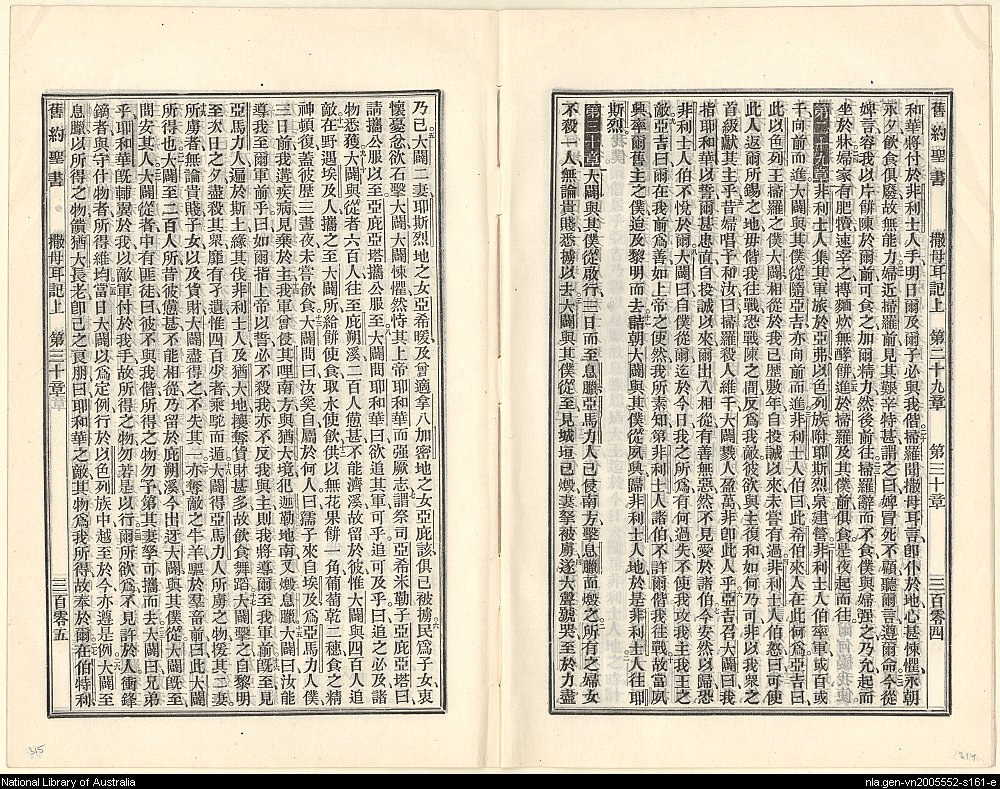 舊約聖書　撒母耳記上　第二十九章　第三十章　三百零四
和華將付於非利士人手、明日爾及爾子必與我偕、掃羅聞撒母耳言、卽仆於地、心甚悚懼、永朝
永夕、飲食俱廢、故無能力、婦近掃羅前、見其艱辛特甚、謂之曰、婢冒死不顧、聽爾言、遵爾命、今從
婢言、容我以片餅陳於爾前、可食之、加爾精力、然後前往、掃羅辭而不食、僕與婦強之、乃允、起而
坐於牀、婦家有肥犢、速宰之、摶麵炊無酵餅、進於掃羅及其僕前、俱食、是夜起而往、
第二十九章 非利士人集其軍旅於亞弗、以色列族附耶斯烈泉建營、非利士人伯率軍、或百或
千、向前而進、大闢與其僕從、隨亞吉亦向前而進、非利士人伯曰、此希伯來人在此何爲、亞吉曰、
此以色列王掃羅之僕大闢、相從於我、已歷數年、自投誠以來、未嘗有過、非利士人伯怒曰、可使
此人返爾所錫之地、毋偕我往戰、恐戰陳之間、反爲我敵、彼欲與主復和、如何乃可、非以我衆之
首級獻其主乎、昔婦唱予和汝曰、掃羅殺人維千、大闢戮人盈萬、非卽此人乎、亞吉召大闢曰、我
指耶和華以誓、爾甚忠直、自投誠以來、爾出入相從、有善無惡、然不見愛於諸伯、今安然以歸、恐
非利士人伯不悅於爾、大闢曰、自從僕從爾、迄於今日、我之所爲、有何過失、不使我攻我主我王之
敵、亞吉曰、爾在我前爲善、如上帝之使、然我所素知、第非利士人諸伯不許爾偕我往戰、故當夙
興、率爾舊主之僕遄返、及乎黎明而去、詰朝、大闢與其僕從夙興、歸非利士人地、於是非利士人往耶
斯烈、
第三十章 大闢與其僕從啟行、三日而至息臘、亞馬力人已侵南方、擊息臘而燬之、所有之婦女、
不殺一人、無論貴賤、悉擄以去、大闢與其僕從至、見城垣已燬、妻孥被虜、遂大聲號哭、至於力盡、
乃已、大闢二妻、耶斯烈地之女亞希暖、及曾適拿八加密地之女亞庇該、俱已被擄、民爲子女、衷
懷憂忿、欲石擊大闢、大闢悚懼、然恃其上帝耶和華而強厥志、謂祭司亞希米勒子亞庇亞塔曰、
請攜公服以至、亞庇亞塔攜公服至、大闢問耶和華曰、欲追其軍可乎、追可及乎、曰、追之必及、諸
物悉獲、大闢與從者六百人、往至庇朔溪、二百人憊甚、不能濟溪、故留於彼、惟大闢與四百人追
敵、在野遇埃及人、攜之至大闢所、給餅使食、取水使飲、供以無花果餅一角、葡萄乾二穗、食之、精
神頓復、蓋彼歷三晝夜未嘗飲食、大闢問曰、汝奚自、屬於何人、曰、孺子來自埃及、爲亞馬力人僕、
三日前、我遘疾病、見棄於主、我軍曾侵其哩南方、與猶大境、犯迦勒地南、又燬息臘、大闢曰、汝能
導我至爾軍前乎、曰、如爾指上帝以誓、必不殺我、亦不反我與主、則我將導爾至我軍前、旣至、見
亞馬力人遍於斯土、緣其伐非利士人及猶大地、攘奪貨財甚多、故飮食舞蹈、大闢擊之、自黎明
至次日之夕、盡殺其衆、靡有孑遺、惟四百少者、乘駝而遁、大闢得亞馬力人所虜之物、援其二妻、
所虜者無論貴賤子女、以及貨財、大闢盡得之、不失其一、亦奪敵之牛羊、驅於羣畜前、曰、此大闢
所得也、大闢至二百人所、昔彼憊甚、不能相從、乃留於庇朔溪、今出迓大闢、與其僕從、大闢旣至、
問安、其人大闢從者中有匪徒曰、彼不與我偕、所得之物勿予、第其妻孥可攜而去、大闢曰、兄弟
乎、耶和華旣輔翼於我、以敵軍付於我手、故所得之物、勿若是以行、爾所欲爲、不見許於人、衝鋒
鏑者、與守什物者、所得維均、當日大闢以爲定例、行於以色列族中、越至於今、亦遵是例、大闢至
息臘、以所得之物、饋猶大長老、卽己之良朋、曰、耶和華之敵、其物爲我所得、故奉於爾、在伯特利、
舊約聖書　撒母耳記上　第三十章　三百零五
315
314
National Library of Australia
nla.gen-vn2005552-s161-e